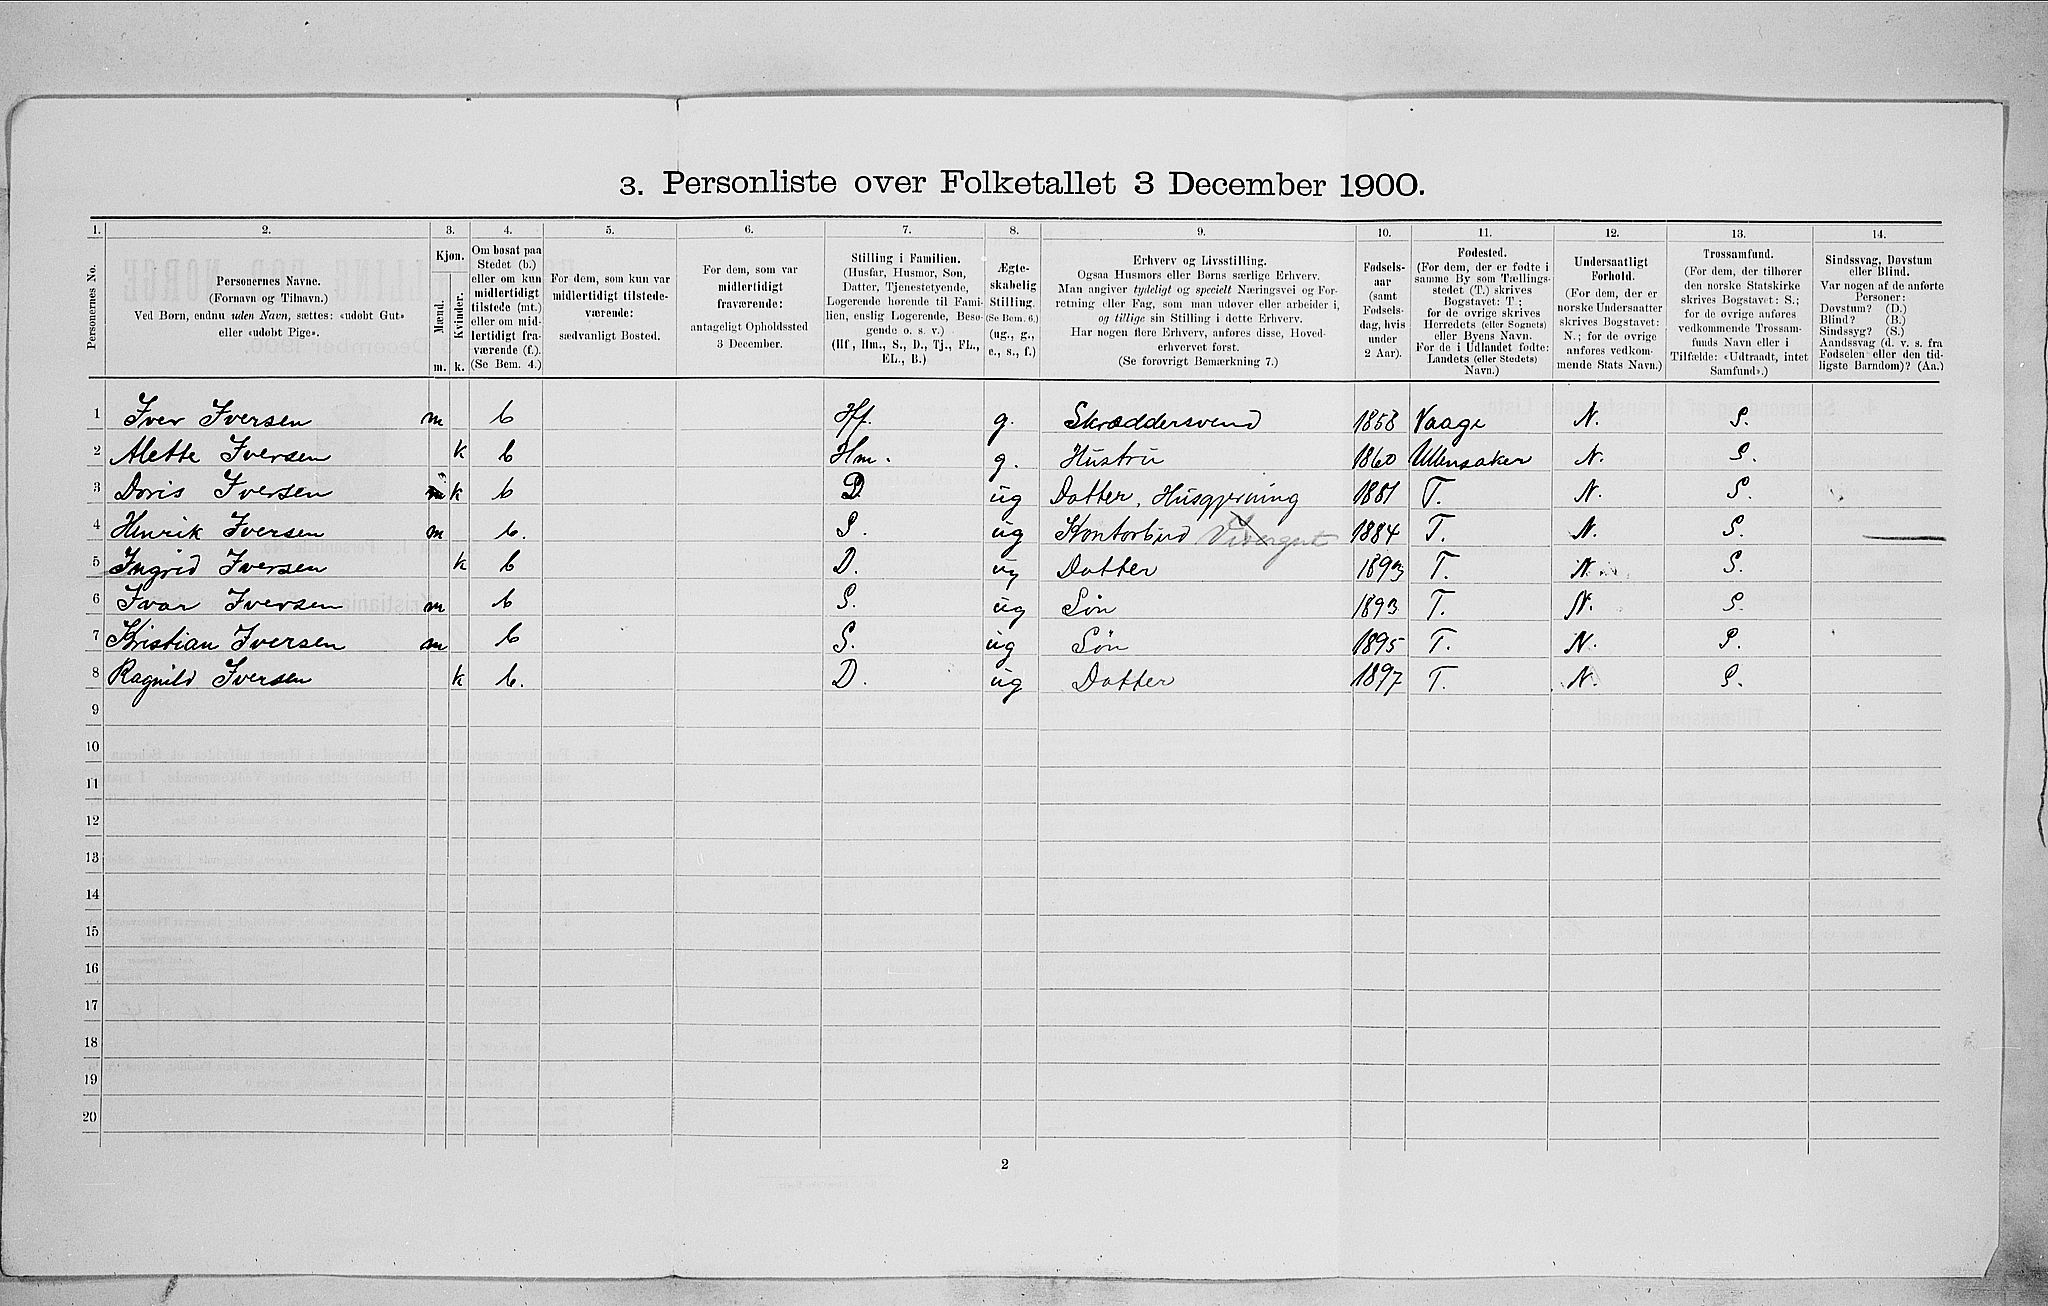 3. Personliste over Folketallet 3 December 1900.
1. 2. 3. 4. 5. 6. 7. 8. 9. 10. 11. 12. 13. 14.
Personernes No.
Personernes Navne.
(Fornavn og Tilnavn.)
Ved Børn, endnu uden Navn, sættes: «udøbt Gut»
eller «udøbt Pige».
Kjøn.
Mænd.
Kvinder.
m. k.
Om bosat paa
Stedet (b.)
eller om kun
midlertidigt
tilstede (mt.)
eller om mid-
lertidigt fra-
værende (f.).
(Se Bem. 4.)
For dem, som kun var
midlertidigt tilstede-
værende:
sædvanligt Bosted.
For dem, som var
midlertidigt
fraværende:
antageligt Opholdssted
3 December.
Stilling i Familien.
(Husfar, Husmor, Søn,
Datter, Tjenestetyende,
Logerende hørende til Fami-
lien, enslig Logerende, Besø-
gende o. s. v.)
(Hf, Hm., S., D., Tj., FL.,
EL., B.)
Ægte-
skabelig
Stilling.
(Se Bem. 6.)
(ug., g.,
e., s., f.)
Erhverv og Livsstilling.
Ogsaa Husmors eller Børns særlige Erhverv.
Man angiver tydeligt og specielt Næringsvei og For-
retning eller Fag, som man udøver eller arbeider i,
og tillige sin Stilling i dette Erhverv.
Har nogen flere Erhverv, anføres disse, Hoved-
erhvervet først.
(Se forøvrigt Bemærkning 7.)
Fødsels-
aar
(samt
Fødsels-
dag, hvis
under
2 Aar).
Fødested.
(For dem, der er fødte i
samme By som Tællings-
stedet (T.) skrives
Bogstavet: T;
for de øvrige skrives
Herredets (eller Sognets)
eller Byens Navn.
For de i Udlandet fødte:
Landets (eller Stedets)
Navn.)
Undersaatligt
Forhold.
(For dem, der er
norske Undersaatter
skrives Bogstavet:
N.; for de øvrige
anføres vedkom-
mende Stats Navn.)
Trossamfund.
(For dem, der tilhører
den norske Statskirke
skrives Bogstavet: S.;
for de øvrige anføres
vedkommende Trossam-
funds Navn eller i
Tilfælde: «Udtraadt, intet
Samfund».)
Sindssvag, Døvstum
eller Blind.
Var nogen af de anførte
Personer:
Døvstum? (D.)
Blind? (B.)
Sindssyg? (S.)
Aandssvag (d. v. s. fra
Fødselen eller den tid-
ligste Barndom)? (Aa.)
1 Iver Iversen m b Hf. g. Skræddersvend 1858 Vaage N. S.
2 Alette Iversen k b Hm. g. Hustru 1860 Ullensaker N. S.
3 Doris Iversen m k b D. ug Datter, Husgjerning 1881 T. N. S.
4 Henrik Iversen m b. S. ug Kontorbud Visergut 1884 T. N. S.
5 Ingrid Iversen k b D. ug Datter 1893 T. N. S.
6 Ivar Iversen m b S. ug Søn 1893 T. N. S.
7 Kristian Iversen m b S. ug Søn 1895 T. N. S.
8 Ragnild Iversen k b. D. ug Datter 1897 T. N. S.
9
10
11
12
13
14
15
16
17
18
19
20
2